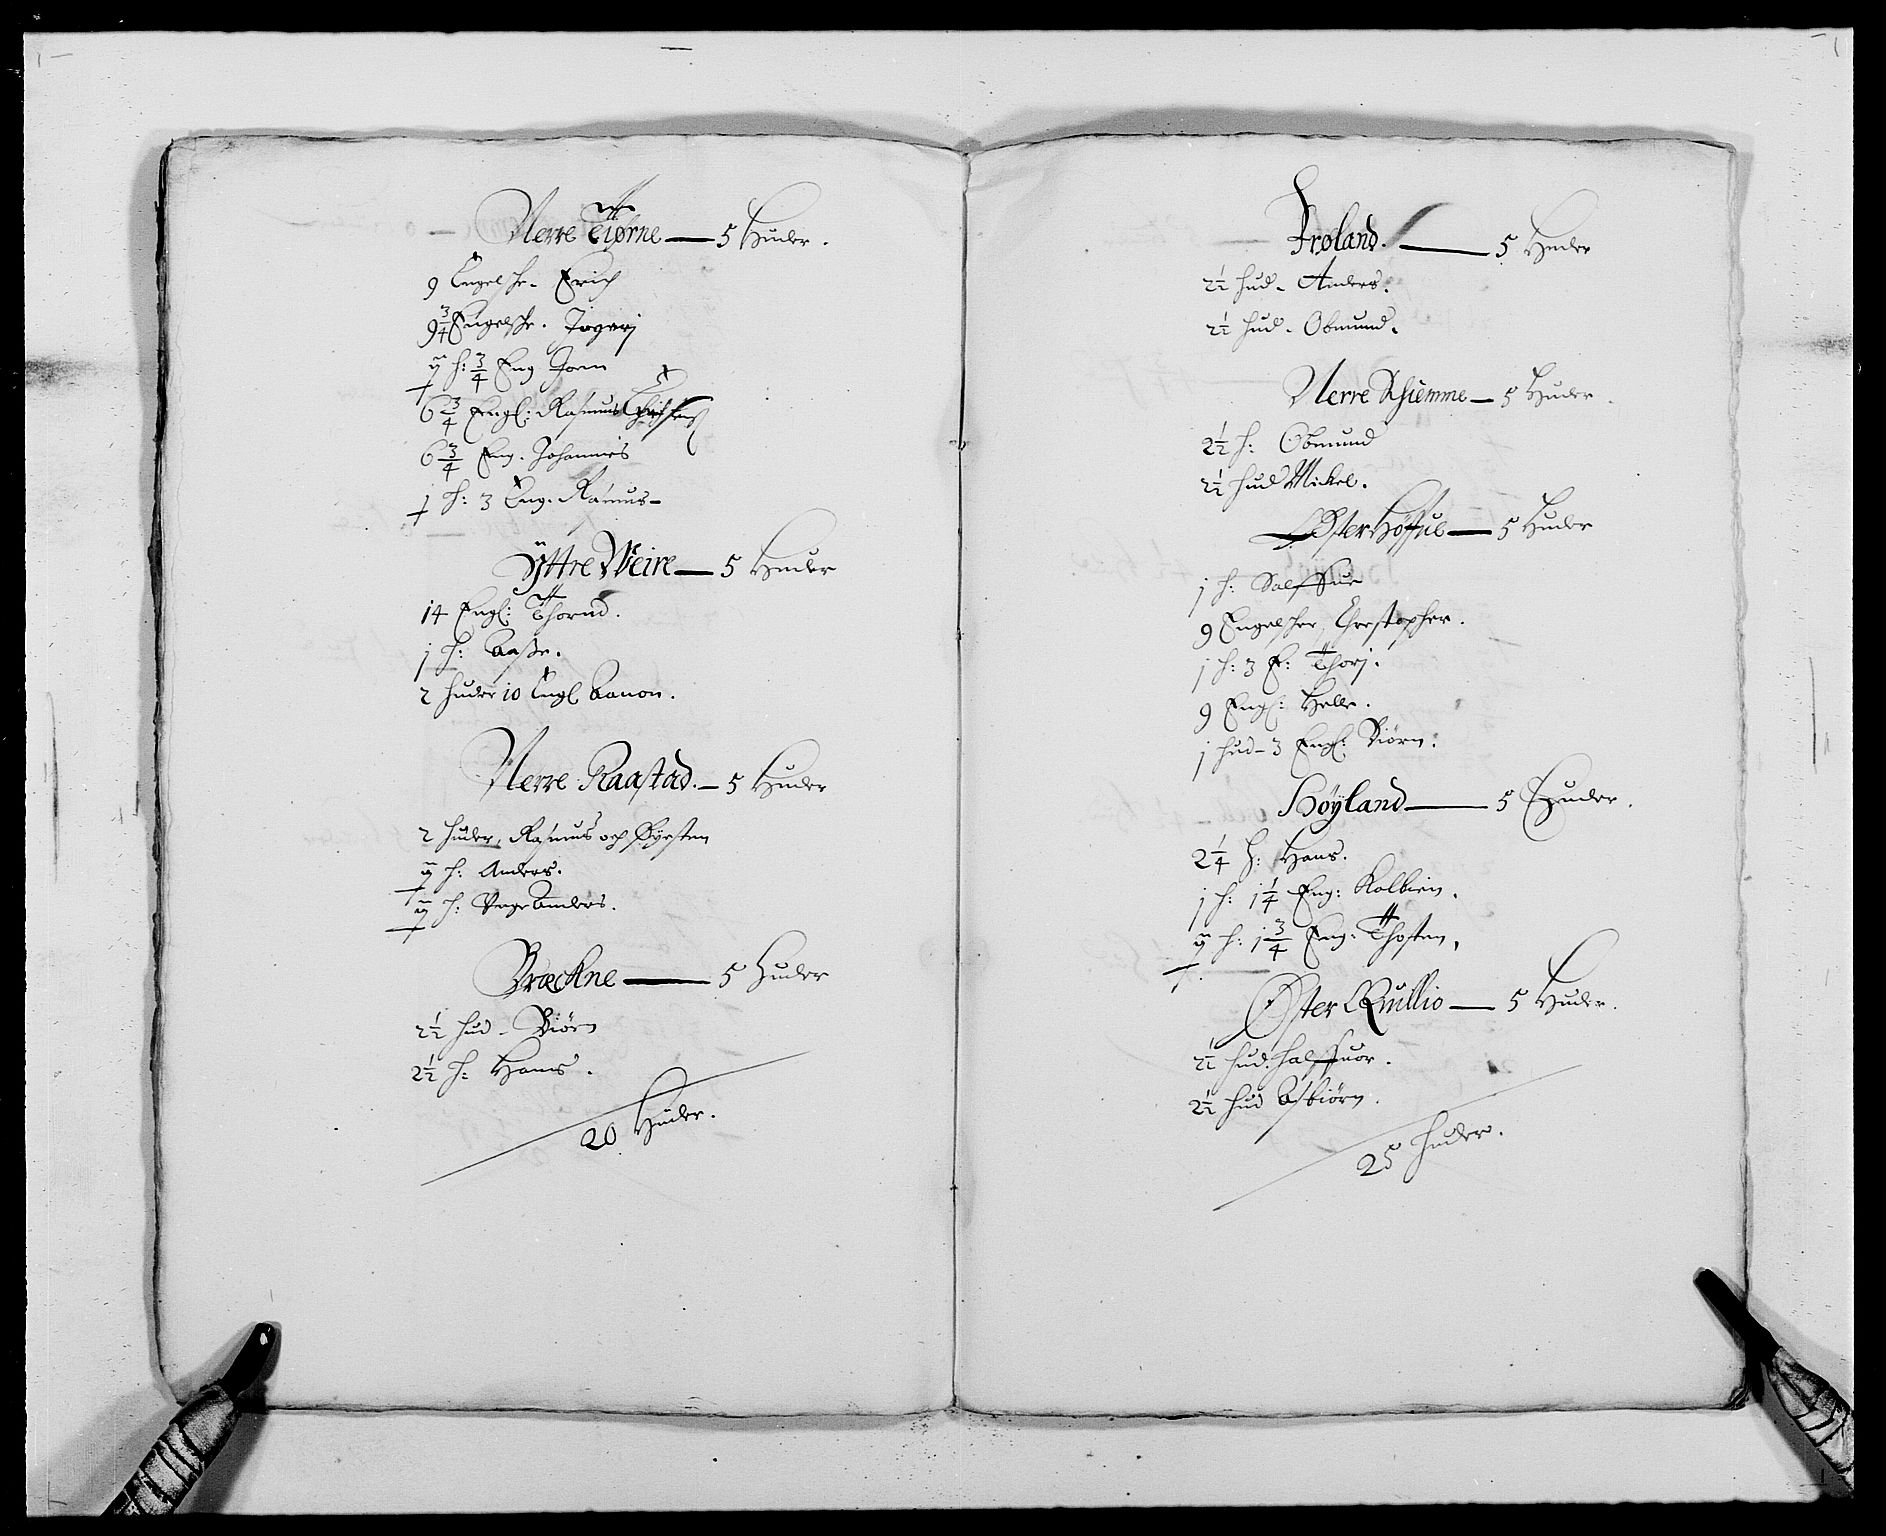 Nerre Tiørne — 5 Huder.
9 Engelske. Erich
9 3/4 Engelske. Torgerj
ÿ h: 3/4 Eng Joen
6 3/4 Engl: Rasmus Christens
6 3/4 Eng. Johannes
j h: 3 Eng. Rasmus –
Ÿttre Weire — 5 Huder
14 Engl: Thorud.
j h: Aasße.
2 huder 10 Engl Aanon.
Nerre Raastad. — 5 Huder
2 huder, Rasmus och Byrsten
ÿ h: Anders.
ÿ h: Unge Anders.
Bræckne — 5 Huder
2 1/2 hud – Biørn
2 1/2 h: Hans.
20 Huder.
Frøland. — 5 Huder
2 1/2 hud – Anders.
2 1/2 hud – Obmund.
Nerre Khiemme — 5 Huder.
2 1/2 h: Obmund
2 1/2 hud Mickel.
Øster Høffue — 5 Huder
j h: Salffue
9 Engelsker, Chrestopher.
j h: 3 E: Thorj.
9 Engl: Helle.
j hud – 3 Engl: Biørn.
Høÿland — 5 Huder.
2 1/4 h: Hans.
j h: j 1/4 Eng: Kolbien.
ÿ h: j 3/4 Eng: Thosten,
Øster Quillio — 5 Huder.
2 1/2 hud. halffuor.
2 1/2 hud Asbiørn.
25 huder.